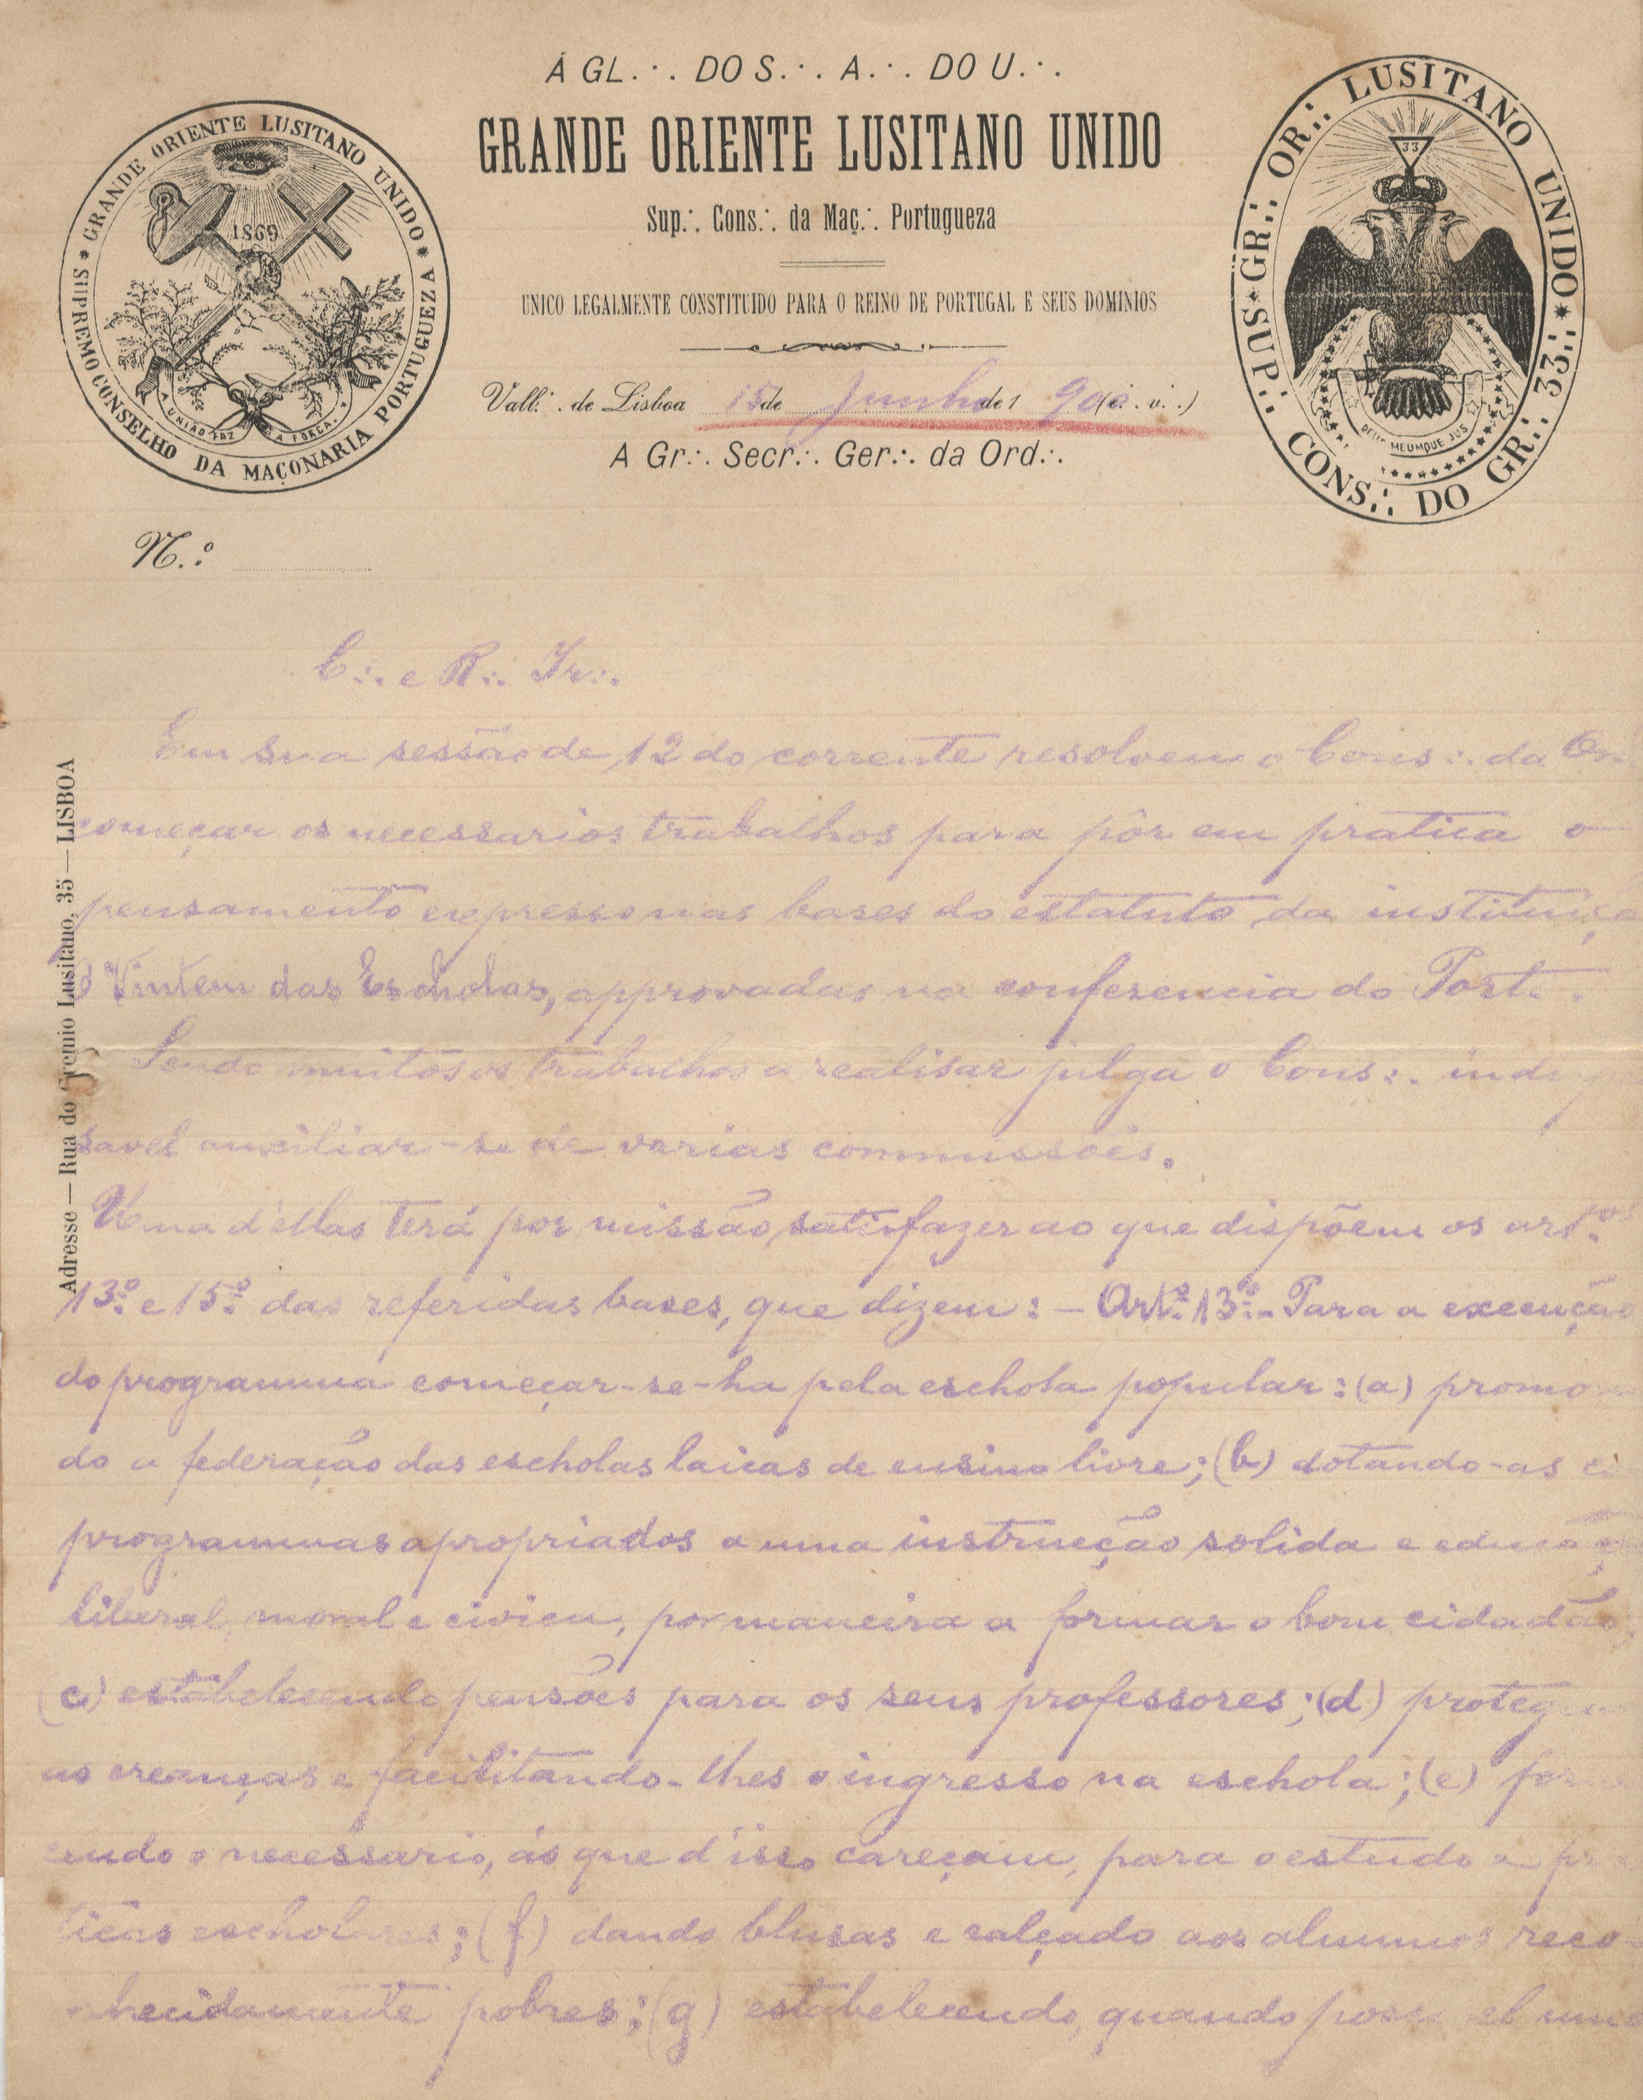 Á GL.·. DO S.·. A.·. DO U.·.
GRANDE ORIENTE LUSITANO UNIDO
Sup.·. Cons.·. da Maç.·. Portugueza
UNICO LEGALMENTE CONSTITUIDO PARA O REINO DE PORTUGAL E SEUS DOMINIOS
Vall.·. de Lisboa 15 de Junho de 1900 (e.·. v.·.)
A Gr.·. Secr.·. Ger.·. da Ord.·.
GRANDE ORIENTE LUSITANO UNIDO
SUPREMO CONSELHO DA MAÇONARIA PORTUGUEZA
1869
A UNIÃO FAZ A FORÇA
SUP.·. CONS.·. DO GR.·. 33.·. GR.·. OR.·. LUSITANO UNIDO
33
DEUS MEUMQUE JUS
N.º
Adresse — Rua do Gremio Lusitano, 35 — LISBOA
C.·. e R.·. Ir.·.
Em sua sessão de 12 do corrente resolveu o Cons.·. da Or.
começar os necessarios trabalhos para pôr em pratica o
pensamento expresso nas bases do estatuto da instituiçã
O Vintem das Escholas, approvadas na conferencia do Porto.
Sendo muitos os trabalhos a realisar julga o Cons.·. indis
savel auxiliar-se de varias commissões.
Uma d'ellas terá por missão satisfazer ao que dispõem os art.os
13º e 15º das referidas bases, que dizem: — Artº 13º — Para a execução
do programma começar-se-ha pela eschola popular: (a) promo
do a federação das escholas laicas de ensino livre; (b) dotando-as c
programmas apropriados a uma instrucção solida e educaç
liberal, moral e civica, por maneira a formar o bom cidadão
(c) estabelecendo pensões para os seus professores; (d) proteg
as creanças e facilitando-lhes o ingresso na eschola; (e) for
cendo o necessario, ás que d'isso careçam, para o estudo e pr
ticas escholares; (f) dando blusas e calçado aos alumnos reco-
nhecidamente pobres; (g) estabelecendo, quando possivel uma